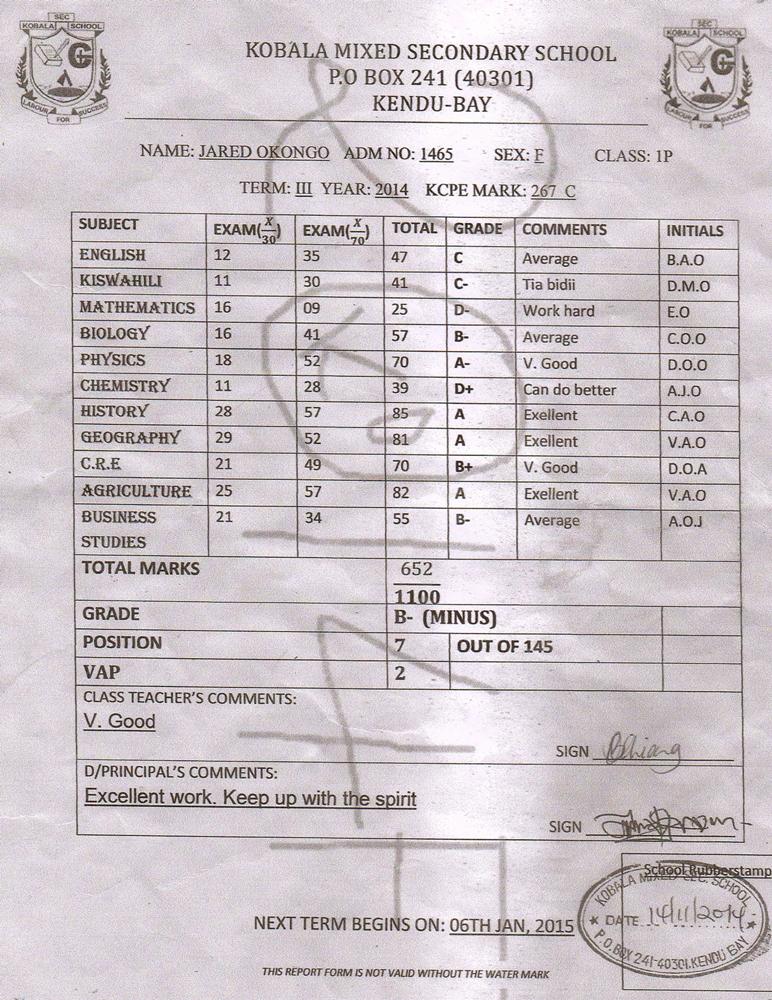 SEC
KOBALA SCHOOL
LABOUR FOR SUCCESS
KOBALA MIXED SECONDARY SCHOOL
P.O BOX 241 (40301)
KENDU-BAY
SEC
KOBALA SCHOOL
LABOUR FOR SUCCESS
NAME: JARED OKONGO ADM NO: 1465 SEX: F CLASS: 1P
TERM: III YEAR: 2014 KCPE MARK: 267 C
SUBJECT EXAM(X/30) EXAM(X/70) TOTAL GRADE COMMENTS INITIALS
ENGLISH 12 35 47 C Average B.A.O
KISWAHILI 11 30 41 C- Tia bidii D.M.O
MATHEMATICS 16 09 25 D- Work hard E.O
BIOLOGY 16 41 57 B- Average C.O.O
PHYSICS 18 52 70 A- V. Good D.O.O
CHEMISTRY 11 28 39 D+ Can do better A.J.O
HISTORY 28 57 85 A Exellent C.A.O
GEOGRAPHY 29 52 81 A Exellent V.A.O
C.R.E 21 49 70 B+ V. Good D.O.A
AGRICULTURE 25 57 82 A Exellent V.A.O
BUSINESS 21 34 55 B- Average A.O.J
STUDIES
TOTAL MARKS 652
1100
GRADE B- (MINUS)
POSITION 7 OUT OF 145
VAP 2
CLASS TEACHER'S COMMENTS:
V. Good
SIGN
D/PRINCIPAL'S COMMENTS:
Excellent work. Keep up with the spirit
SIGN
School Rubberstamp
KOBALA MIXED SEC. SCHOOL
DATE 14/11/2014
P.O. BOX 241-40301, KENDU BAY
NEXT TERM BEGINS ON: 06TH JAN, 2015
THIS REPORT FORM IS NOT VALID WITHOUT THE WATER MARK